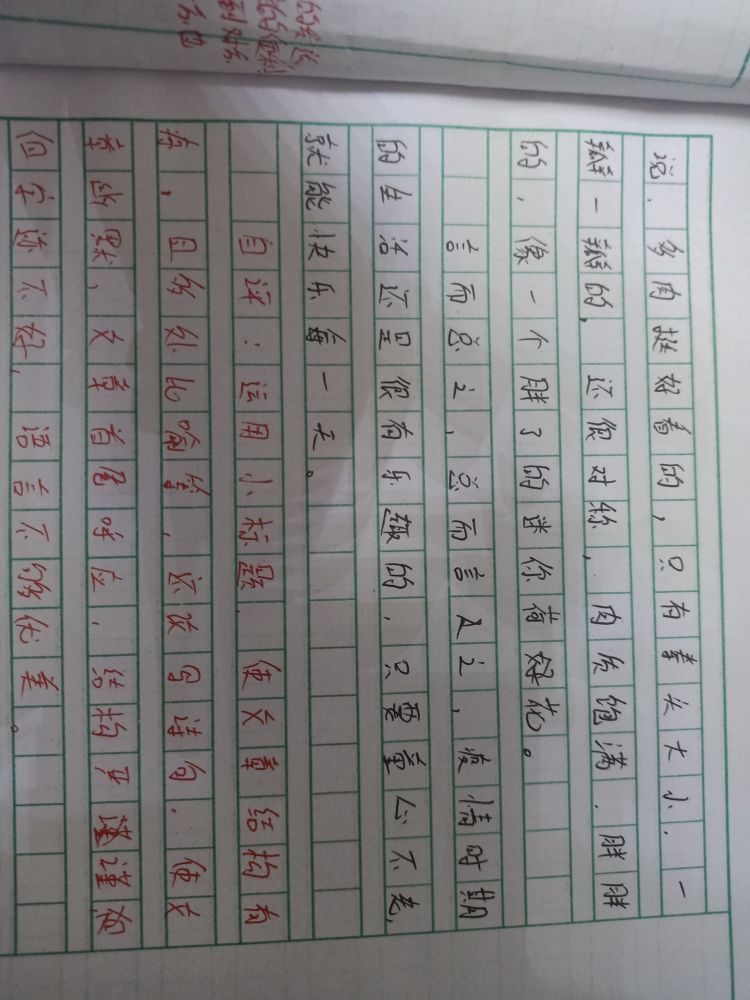 说，多肉挺好看的，只有拳头大小，一
瓣一瓣的，还很对称，肉质饱满，胖胖
的，像一个胖了的迷你荷花。
言而总之，总而言之，疫情时期
的生活还是很有乐趣的，只要童心不老，
就能快乐每一天。
自评：运用小标题，使文章结构有
序，且多处比喻等，还改写诗句，使文
章幽默，文章首尾呼应，结构严谨
但字迹不好，语言不够优美。